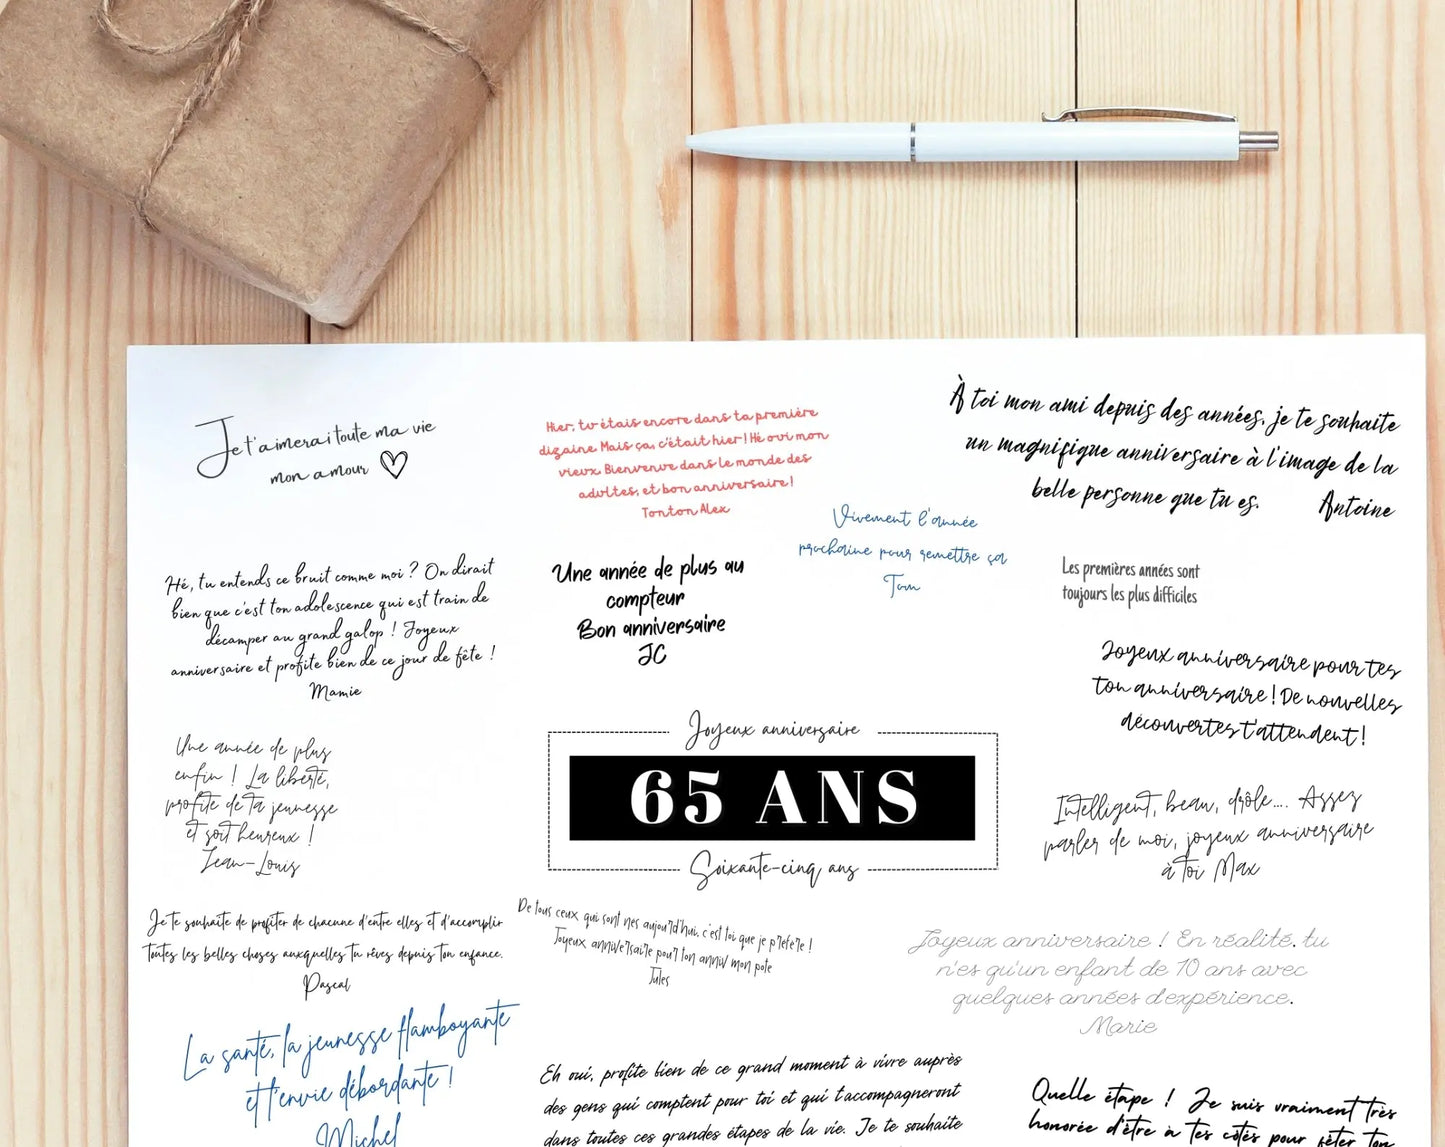 Je t'aimerai toute ma vie
mon amour
Hier, tu étais encore dans ta première
dizaine. Mais ça, c'était hier ! Hé oui mon
vieux. Bienvenue dans le monde des
adultes, et bon anniversaire !
Tonton Alex
À toi mon ami depuis des années, je te souhaite
un magnifique anniversaire à l'image de la
belle personne que tu es. Antoine
Vivement l'année
prochaine pour remettre ça
Tom
Hé, tu entends ce bruit comme moi ? On dirait
bien que c'est ton adolescence qui est train de
décamper au grand galop ! Joyeux
anniversaire et profite bien de ce jour de fête !
Mamie
Une année de plus au
compteur
Bon anniversaire
JC
Les premières années sont
toujours les plus difficiles
Joyeux anniversaire pour tes
ton anniversaire ! De nouvelles
découvertes t'attendent !
Une année de plus
enfin ! La liberté,
profite de ta jeunesse
et soit heureux !
Jean-Louis
Joyeux anniversaire
65 ANS
Soixante-cinq ans
Intelligent, beau, drôle.... Assez
parler de moi, joyeux anniversaire
à toi Max
Je te souhaite de profiter de chacune d'entre elles et d'accomplir
toutes les belles choses auxquelles tu rêves depuis ton enfance.
Pascal
De tous ceux qui sont nes aujourd'hui, c'est toi que je préfère !
Joyeux anniversaire pour ton anniv mon pote
Jules
Joyeux anniversaire ! En réalité, tu
n'es qu'un enfant de 10 ans avec
quelques années d'expérience.
Marie
La santé, la jeunesse flamboyante
et l'envie débordante !
Michel
Eh oui, profite bien de ce grand moment à vivre auprès
des gens qui comptent pour toi et qui t'accompagneront
dans toutes ces grandes étapes de la vie. Je te souhaite
Quelle étape ! Je suis vraiment très
honorée d'être à tes côtés pour fêter ton